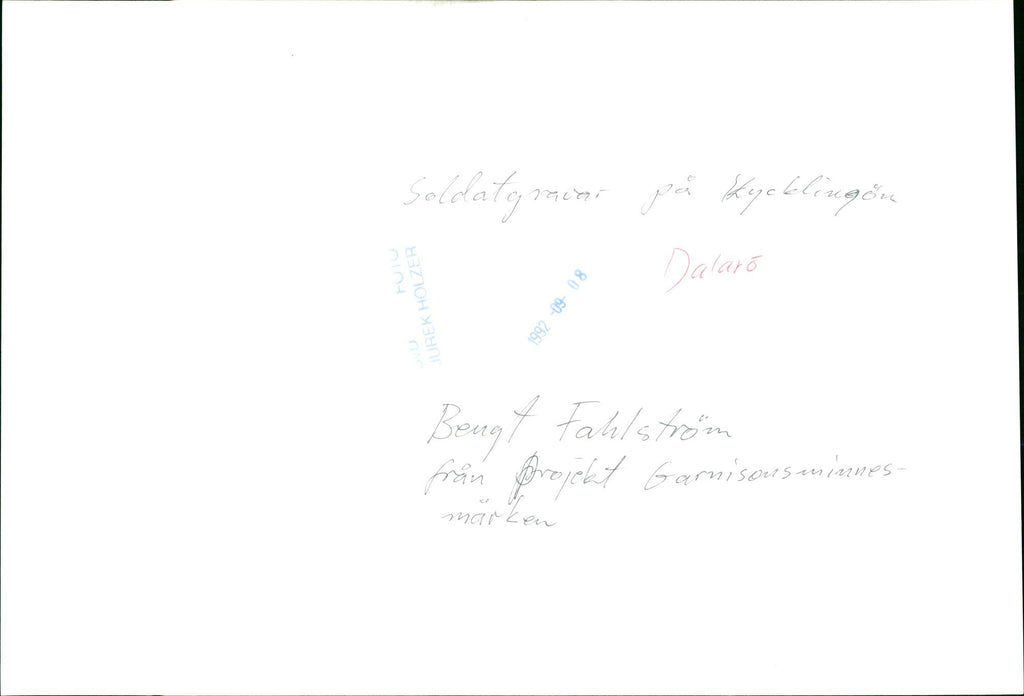 Soldatgravar på Kycklingön
Dalarö
FOTO
JUREK HOLZER
1992 -09- 08
Bengt Fahlström
från Projekt Garnisonsminnes-
märken